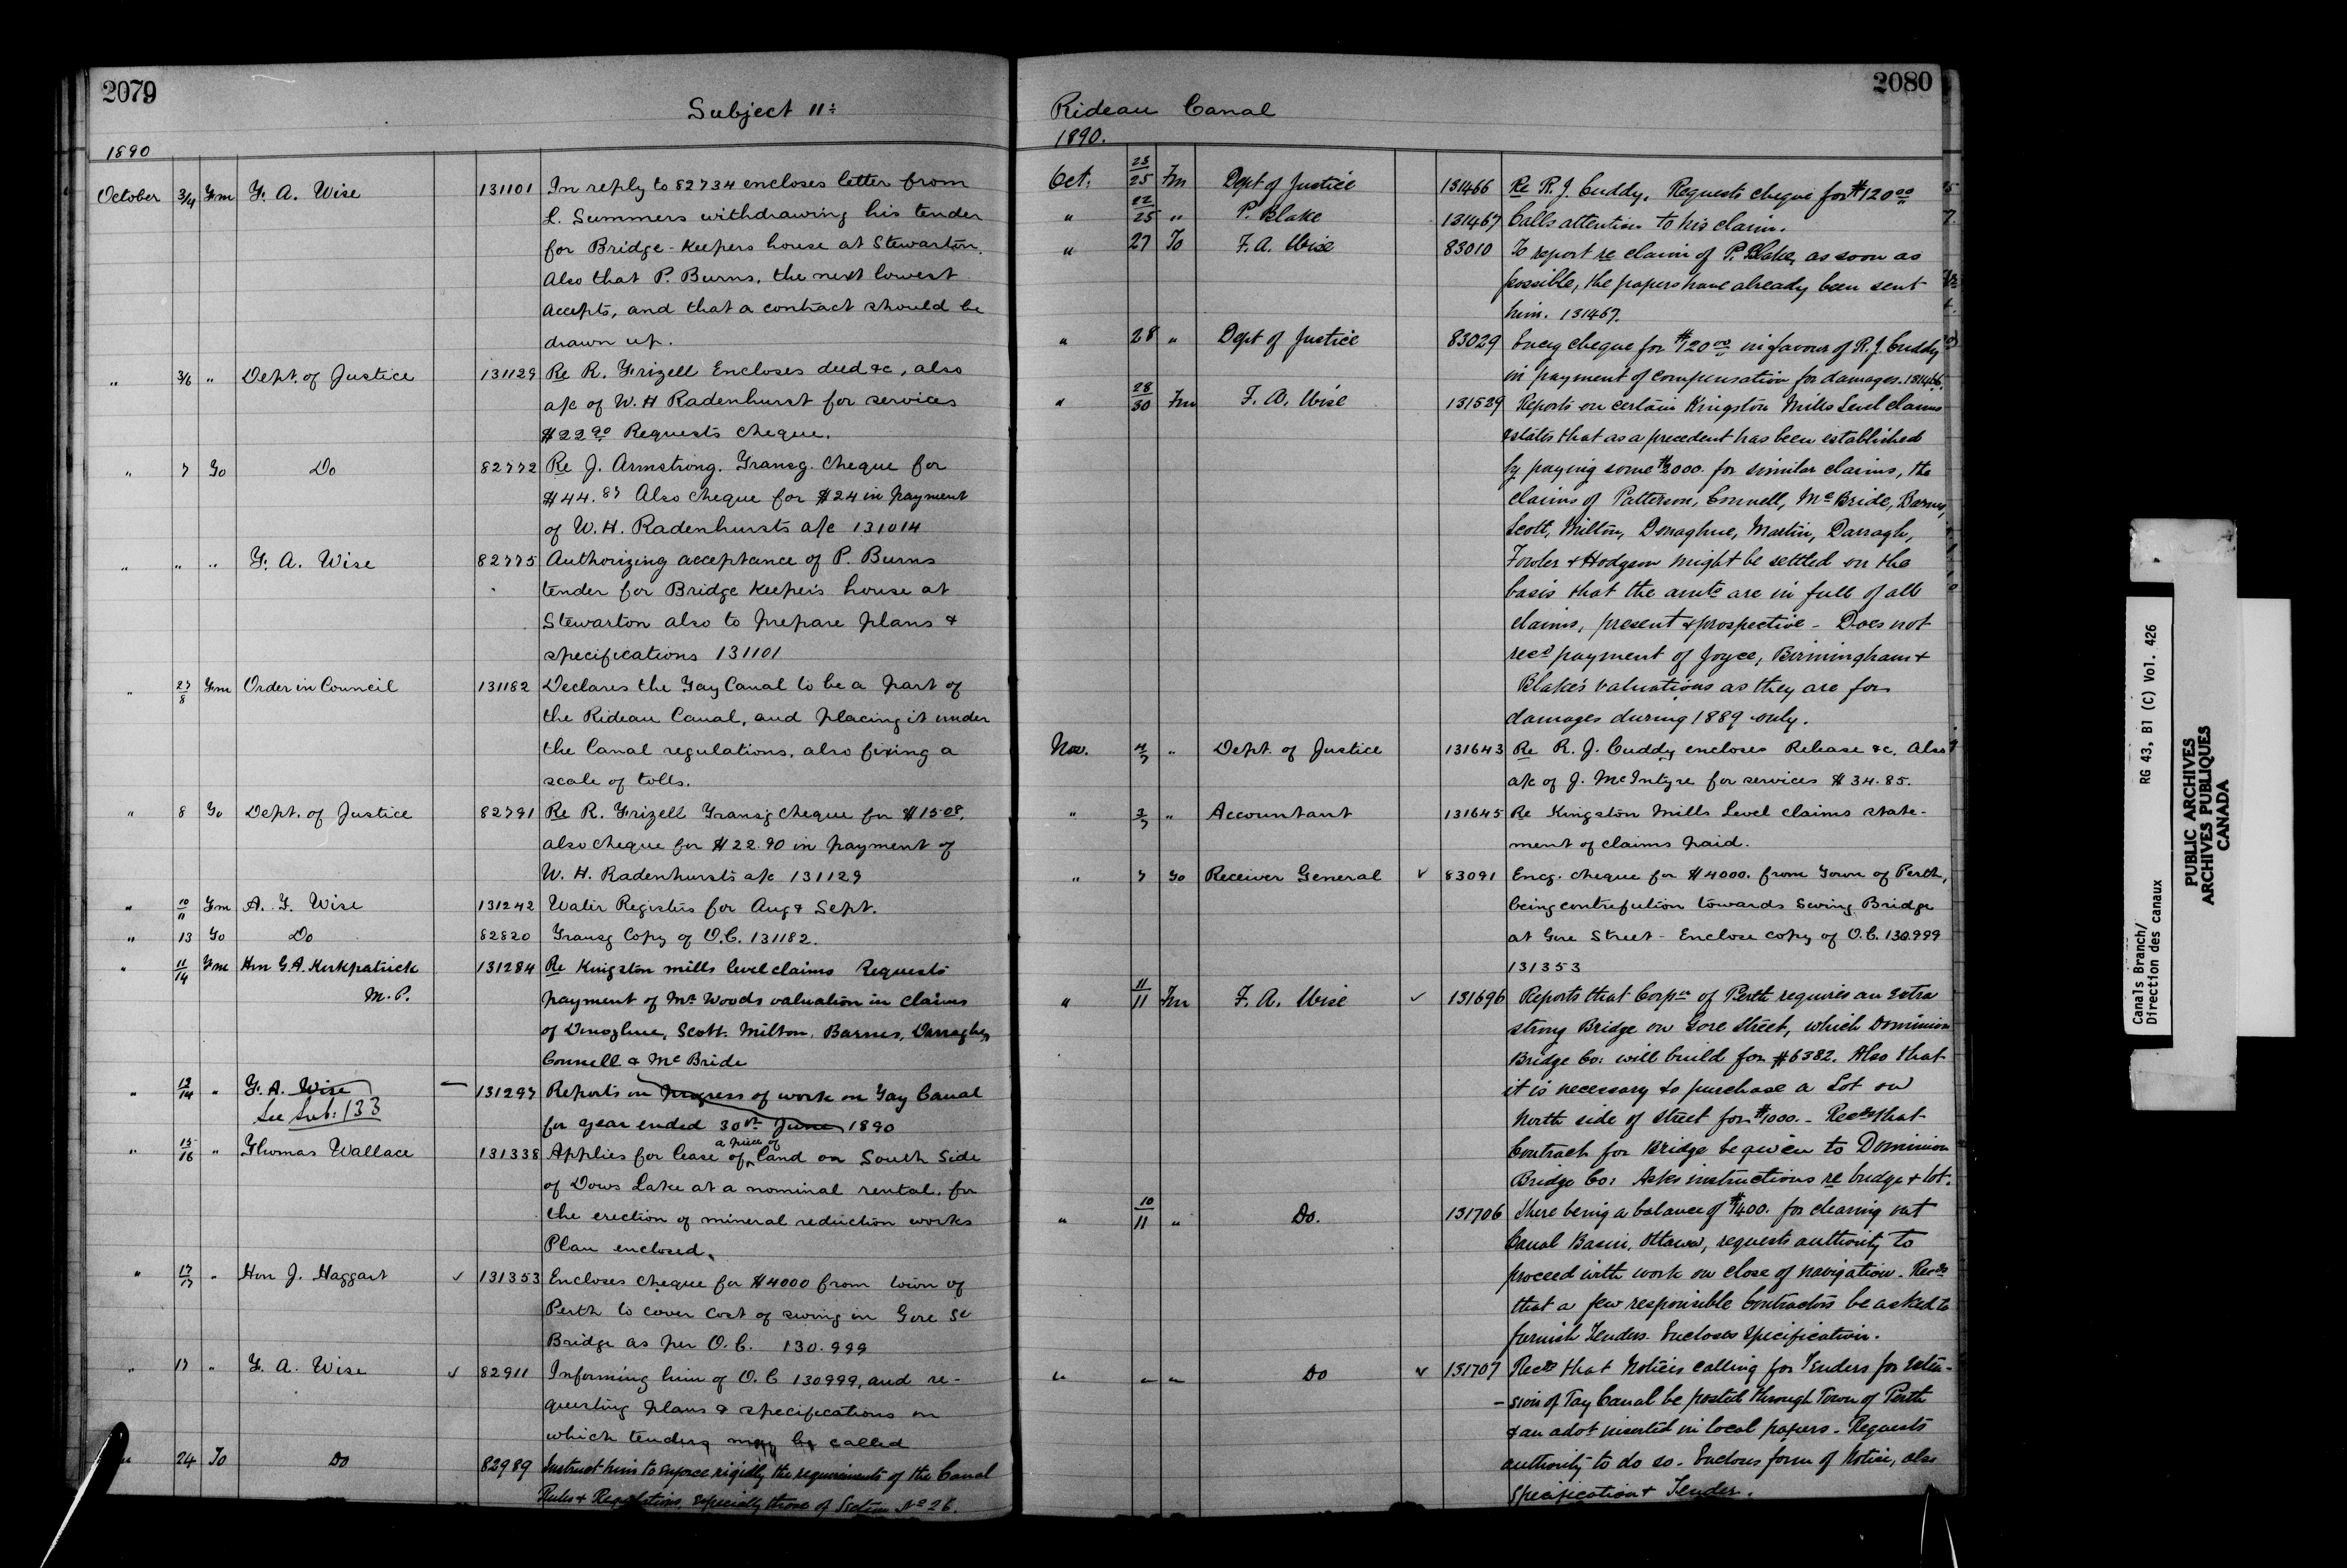 2079
Subject 11:
1890
October 3/4 Fm F. A. Wise 131101 In reply to 82734 encloses letter from
L. Summers withdrawing his tender
for Bridge-Keepers house at Stewarton.
Also that P. Burns, the next lowest
accepts, and that a contract should be
drawn up.
" 3/6 " Dept. of Justice 131129 Re R. Frizell Encloses deed &c, also
a/c of W. H Radenhurst for services
$22.90 Requests cheque.
" 7 To Do 82772 Re J. Armstrong. Transg. Cheque for
$44.87 Also cheque for $24 in payment
of W. H. Radenhursts a/c 131014
" " " F. A. Wise 82775 Authorizing acceptance of P. Burns
tender for Bridge Keepers house at
Stewarton also to prepare plans &
specifications 131101
" 27/8 Fm Order in Council 131182 Declares the Tay Canal to be a part of
the Rideau Canal, and placing it under
the Canal regulations, also fixing a
scale of tolls.
" 8 To Dept. of Justice 82791 Re R. Frizell Transg cheque for $1508,
also cheque for $22.90 in payment of
W. H. Radenhursts a/c 131129
" 10/11 Fm A. F. Wise 131242 Water Registers for Aug & Sept.
" 13 To Do 82820 Transg Copy of O.C. 131182.
" 11/14 Fm Hon G. A. Kirkpatrick 131284 Re Kingston mills level claims Requests
M. P. payment of Mr Woods valuation in claims
of Donoghue, Scott. Milton. Barnes, Darragher,
Connell & McBride
" 13/14 " F. A. Wise — 131297 Reports on progress of work on Tay Canal
See Sub: 133 for year ended 30th June 1890
" 15/16 " Thomas Wallace 131338 Applies for lease of a piece of land on South Side
of Dows Lake at a nominal rental, for
the erection of mineral reduction works
Plan enclosed.
" 17/17 " Hon J. Haggart ✓ 131353 Encloses cheque for $4000 from town of
Perth to cover cost of swing in Gore St
Bridge as per O. C. 130.999
" 17 " F. A. Wise ✓ 82911 Informing him of O. C 130999, and re-
questing plans & specifications on
which tenders may be called
" 24 To Do 82989 Instruct him to enforce rigidly the requirements of the Canal
Rules & Regulations, especially those of Section No 26.
2080
Rideau Canal
1890.
Oct. 23/25 Fm Dept of Justice 131466 Re R. J. Cuddy, Requests cheque for $120.00
" 22/25 " P. Blake 131467 Calls attention to his claim.
" 27 To F. A. Wise 83010 To report re claim of P. Blake, as soon as
possible, the papers have already been sent
him. 131467.
" 28 " Dept of Justice 83029 Encg cheque for $120.00 in favour of R. J. Cuddy
in payment of compensation for damages. 131466.
" 28/30 Fm F. A. Wise 131529 Reports on certain Kingston Mills Level claims
& states that as a precedent has been established
by paying some $3000. for similar claims, the
claims of Patterson, Connell, McBride, Barnes,
Scott, Milton, Donaghue, Martin, Darragh,
Fowler & Hodgson might be settled on the
basis that the amts are in full of all
claims, present & prospective - Does not
recd payment of Joyce, Birmingham &
Blake's valuations as they are for
damages during 1889 only.
Nov. 4/7 " Dept. of Justice 131643 Re R. J. Cuddy encloses Release &c. Also
a/c of J. McIntyre for services $34.85.
" 3/7 " Accountant 131645 Re Kingston Mills Level claims state-
ment of claims paid.
" 7 To Receiver General ✓ 83091 Encg. cheque for $4000. from Town of Perth,
being contrefution towards Swing Bridge
at Gore Street - Enclose copy of O.C. 130.999
131353
" 11/11 Fm F. A. Wise ✓ 131696 Reports that Corpn of Perth requires an extra
strong Bridge on Gore Street, which Dominion
Bridge Co: will build for $6382. Also that
it is necessary to purchase a Lot on
North side of street for $1000. - Recds that
Contract for Bridge be given to Dominion
Bridge Co: Asks instructions re bridge & lot.
" 10/11 " Do. 131706 There being a balance of $1400. for clearing out
Canal Basin, Ottawa, requests authority to
proceed with work on close of navigation. Recds
that a few responsible Contractors be asked to
furnish Tenders. Encloses Specification.
" " " Do ✓ 131707 Recds that Notices calling for Tenders for exten-
-sion of Tay Canal be posted through Town of Perth
& an advt inserted in local papers. Requests
authority to do so. Enclous form of Notice, also
Specification & Tender.
Canals Branch/ RG 43, B1 (C) Vol. 426
Direction des canaux
PUBLIC ARCHIVES
ARCHIVES PUBLIQUES
CANADA